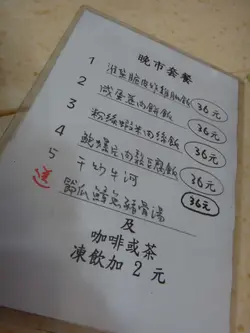 晚市套餐
1 准鹽腩肉或雞扒飯 36元
2 咸蛋蒸肉餅飯 36元
3 粉絲蝦米肉絲飯 36元
4 鮑螺片肉鬆豆腐飯 36元
5 干炒牛河 36元
送 節瓜鱆魚豬骨湯
及
咖啡或茶
凍飲加2元